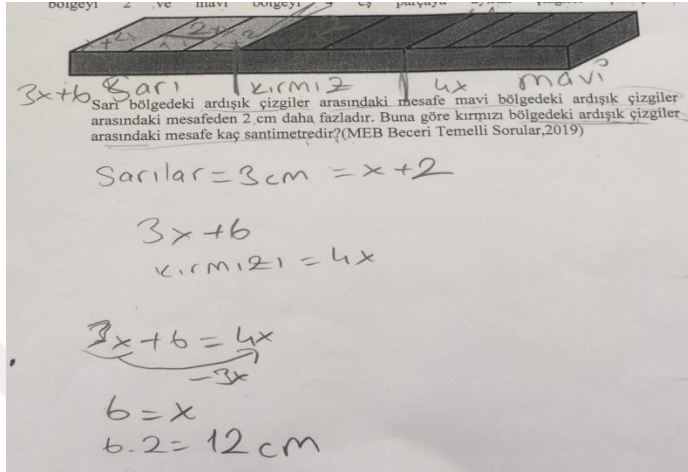 bölgeyi 2 ve mavi bölgeyi 4 eş parçaya
x+2 2x+2
3x+6 Sarı kırmız 4x mavi
Sarı bölgedeki ardışık çizgiler arasındaki mesafe mavi bölgedeki ardışık çizgiler
arasındaki mesafeden 2 cm daha fazladır. Buna göre kırmızı bölgedeki ardışık çizgiler
arasındaki mesafe kaç santimetredir?(MEB Beceri Temelli Sorular,2019)
Sarılar = 3 cm = x+2
3x+6
kırmızı = 4x
3x+6=4x
-3x
6=x
6.2=12 cm